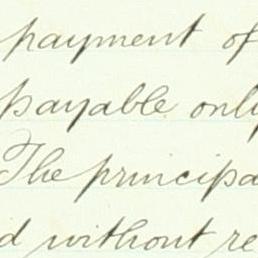 payment of
payable only
The principa
d without re